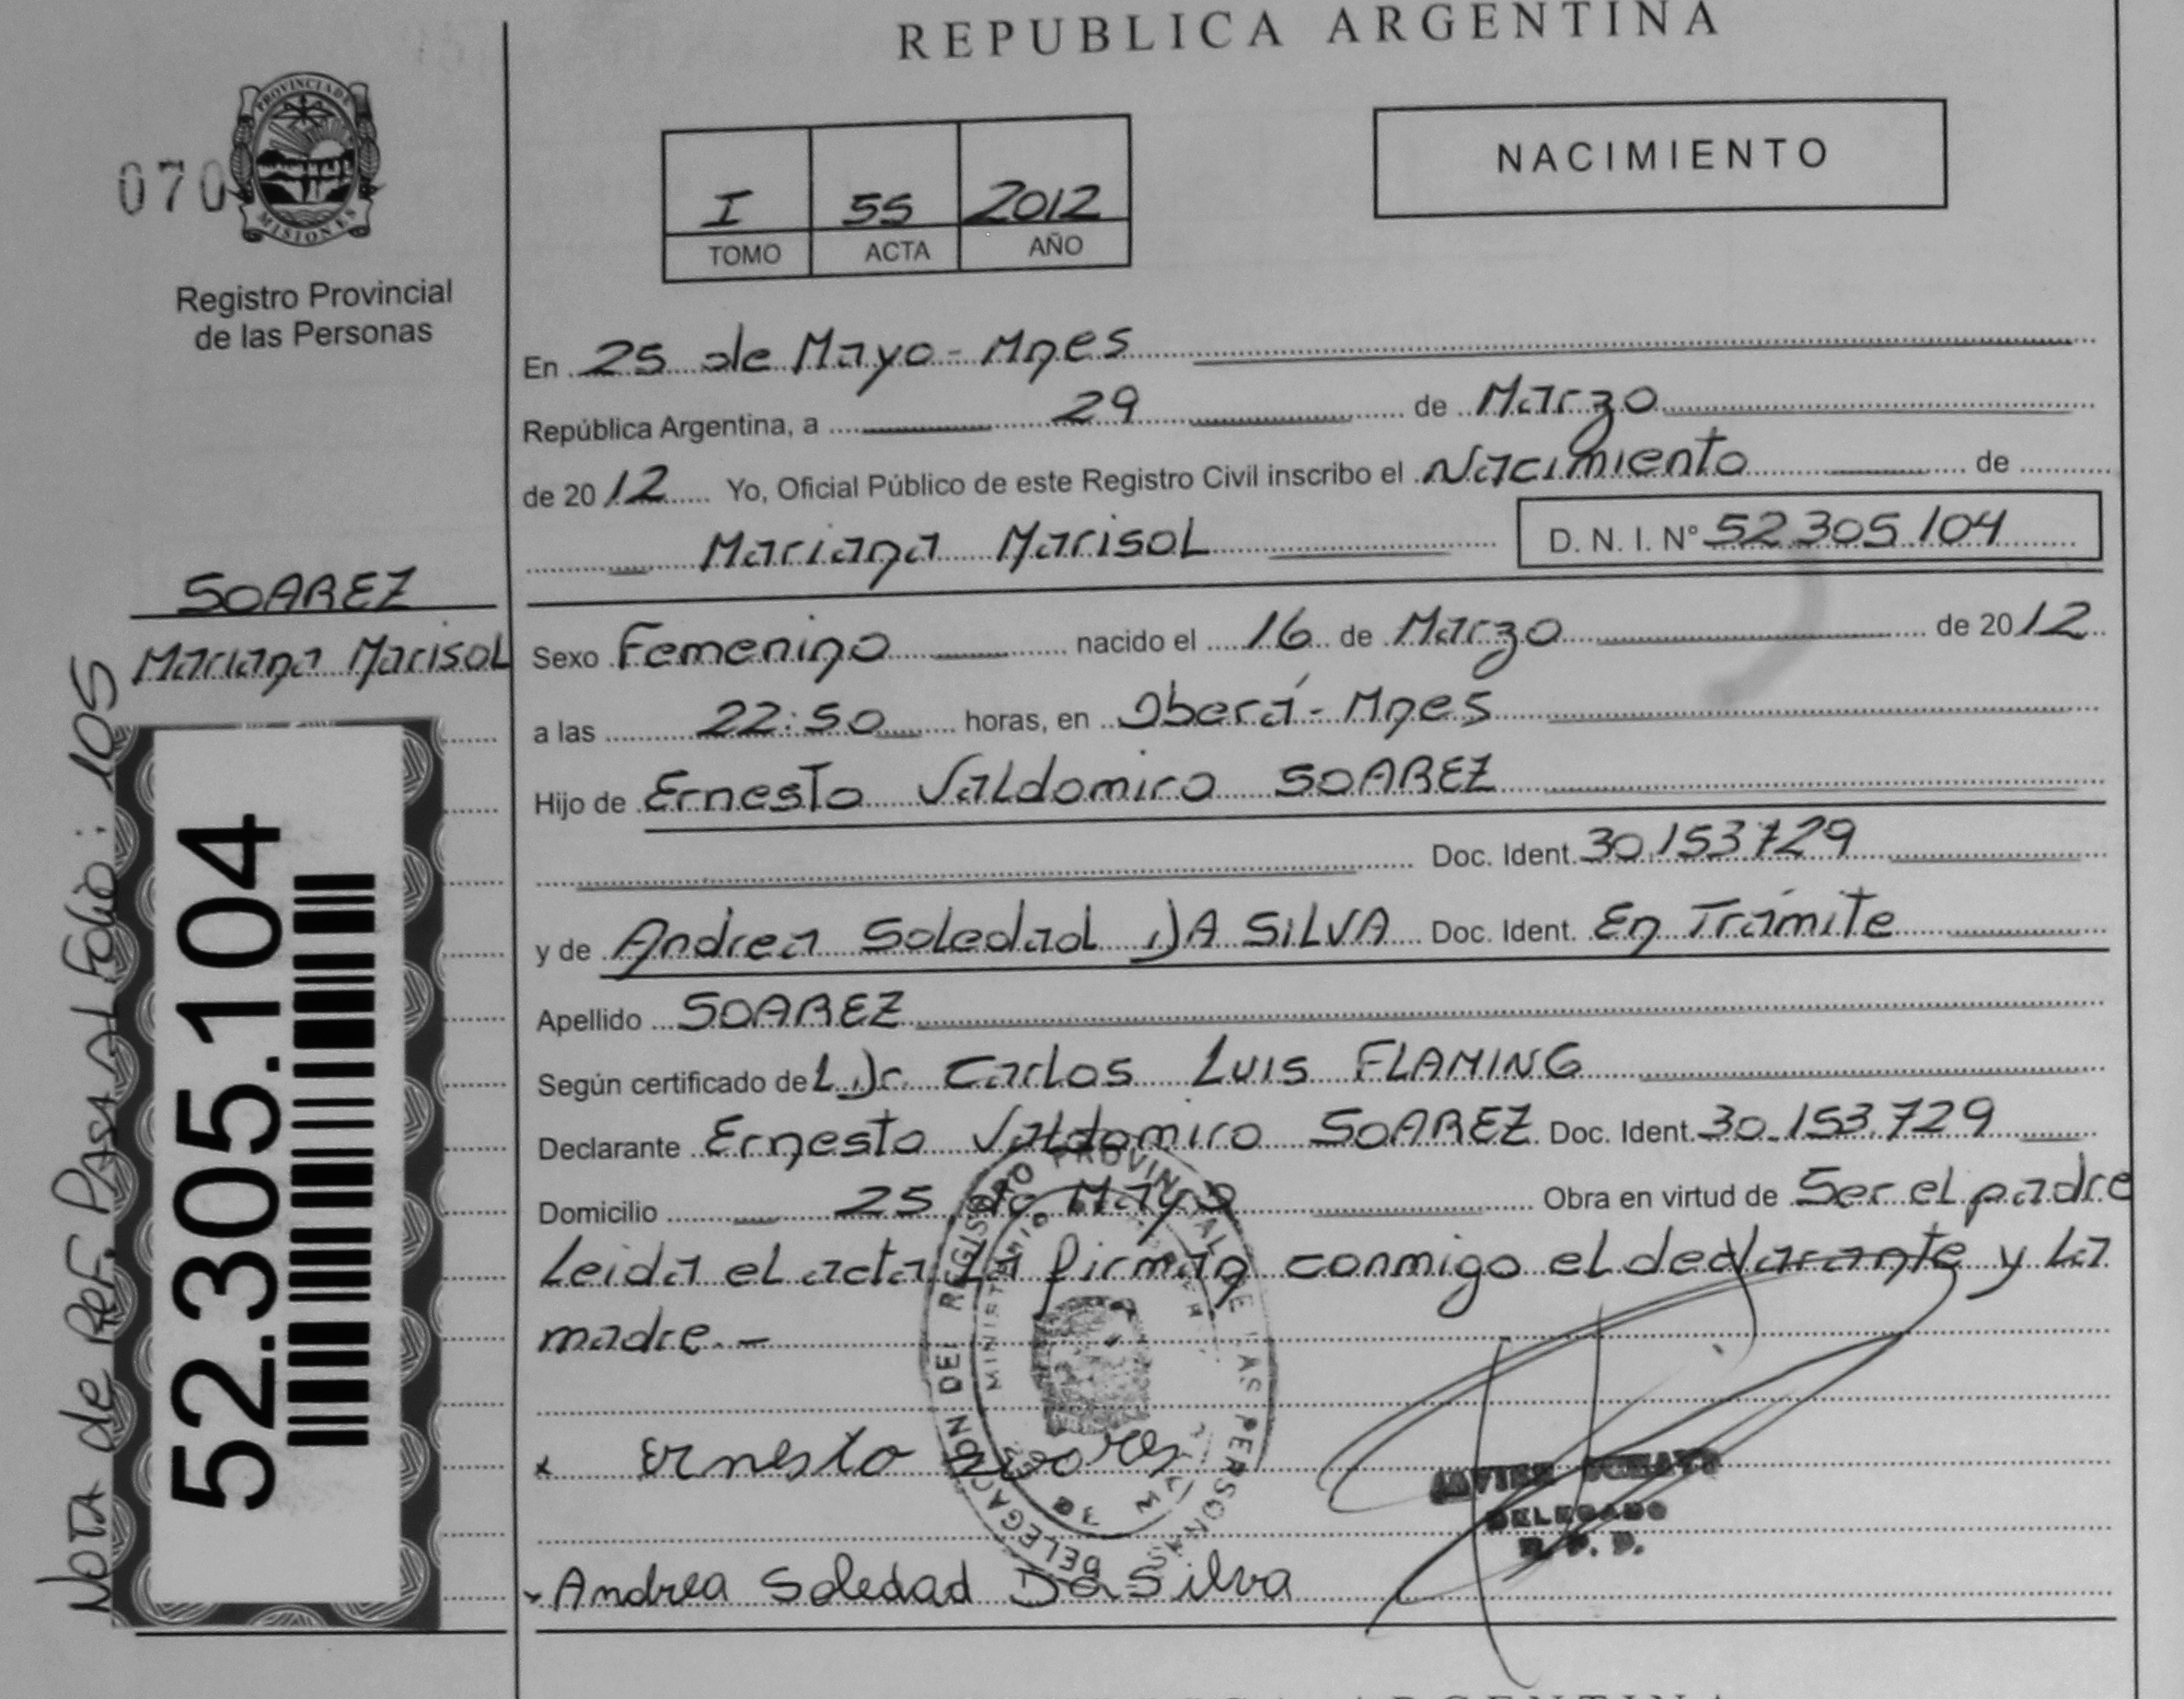 REPUBLICA ARGENTINA
070
PROVINCIA DE
MISIONES
Registro Provincial
de las Personas
I 55 2012
TOMO ACTA AÑO
NACIMIENTO
En 25 de Mayo - Mnes
República Argentina, a 29 de Marzo
de 2012 Yo, Oficial Público de este Registro Civil inscribo el Nacimiento de
Mariana Marisol D. N. I. Nº 52.305.104
SOAREZ
Mariana Marisol
Nota de Ref. Pasa al Folio: 105
52.305.104
Sexo Femenino nacido el 16 de Marzo de 2012
a las 22:50 horas, en Oberá - Mnes
Hijo de Ernesto Valdomiro SOAREZ
Doc. Ident. 30.153.729
y de Andrea Soledad DA SILVA Doc. Ident. En Trámite
Apellido SOAREZ
Según certificado del Dr. Carlos Luis FLAMING
Declarante Ernesto Valdomiro SOAREZ Doc. Ident. 30.153.729
Domicilio 25 de Mayo Obra en virtud de Ser el padre
Leida el acta La firman conmigo el declarante y La
madre. -
DELEGACION DEL REGISTRO PROVINCIAL DE LAS PERSONAS
x Ernesto
JAVIER
DELEGADO
R. P. P.
x Andrea Soledad Da Silva
ARGENTINA